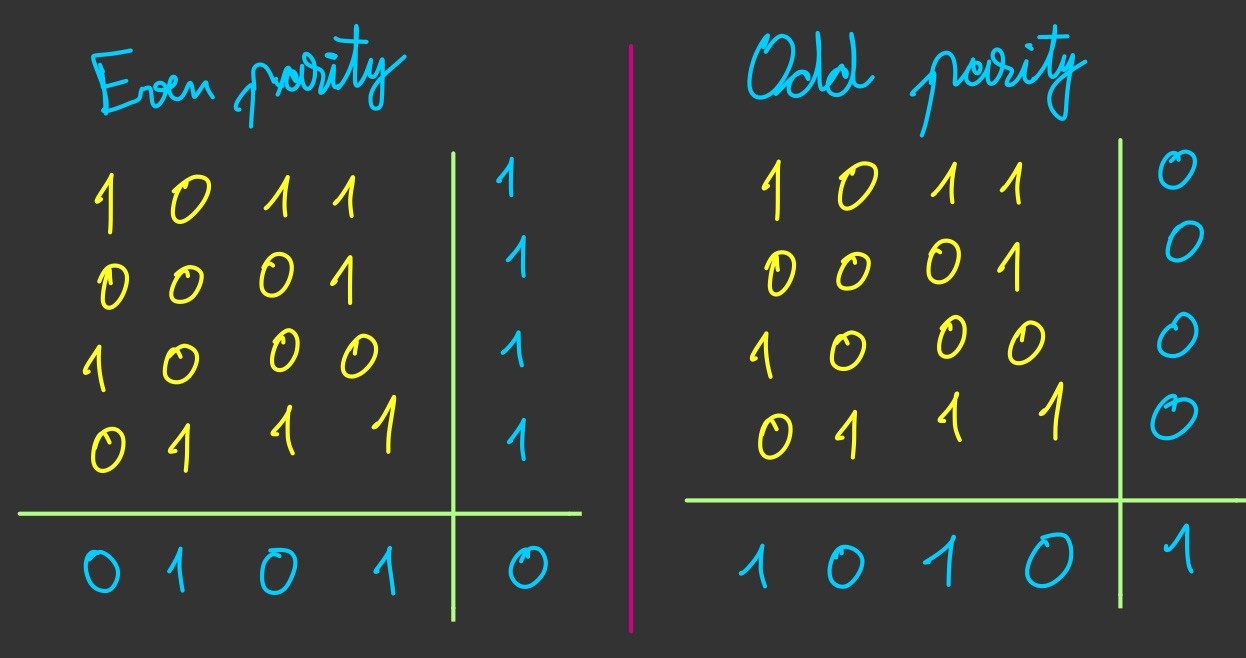 Even parity
1 0 1 1 1
0 0 0 1 1
1 0 0 0 1
0 1 1 1 1
0 1 0 1 0
Odd parity
1 0 1 1 0
0 0 0 1 0
1 0 0 0 0
0 1 1 1 0
1 0 1 0 1